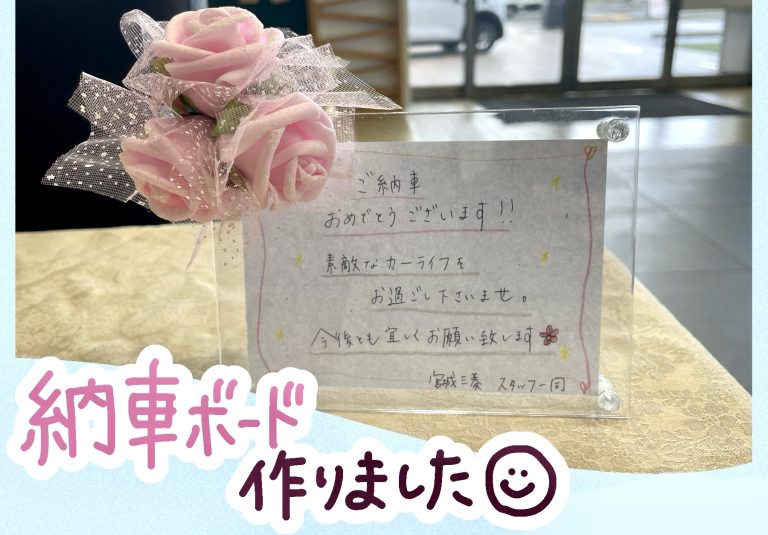 ご納車
おめでとうございます!!
素敵なカーライフを
お過ごし下さいませ。
今後とも宜しくお願い致します
宮城三菱 スタッフ一同
納車ボード
作りました